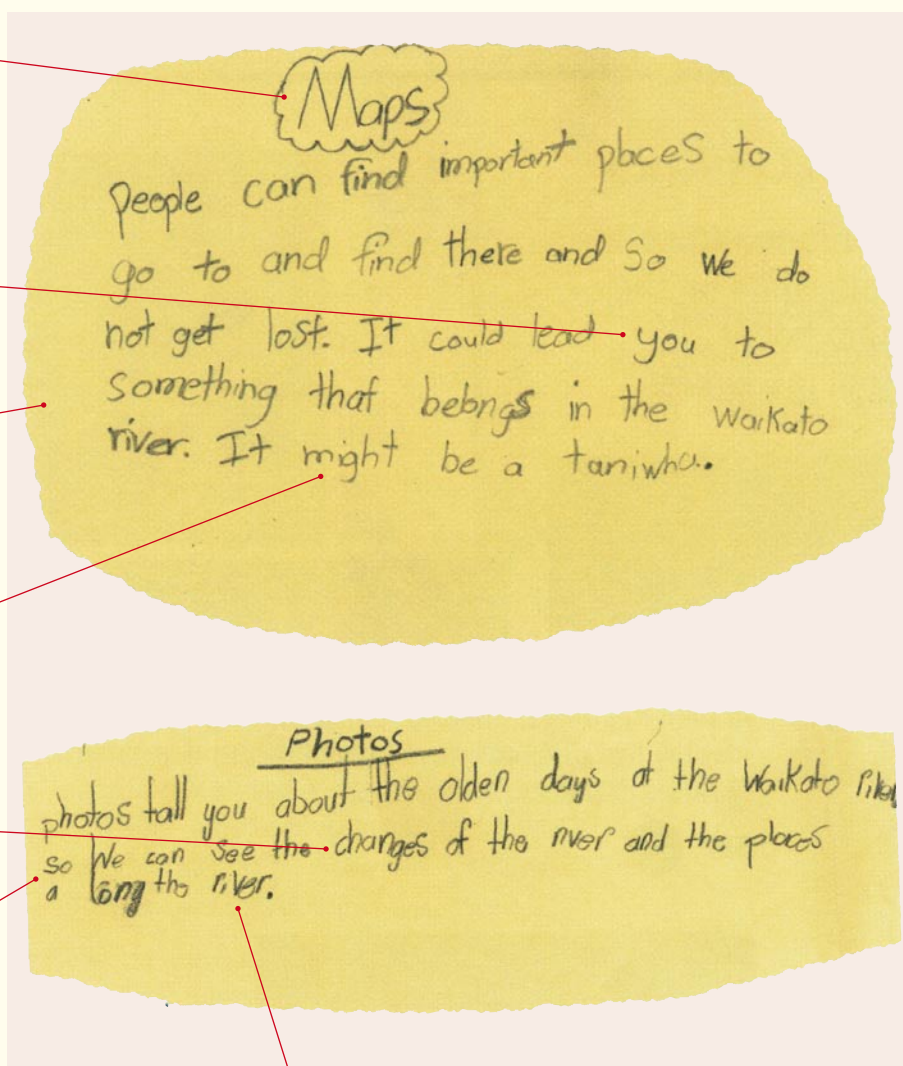 Maps
People can find important places to
go to and find there and So we do
not get lost. It could lead you to
Something that belongs in the Waikato
river. It might be a taniwha.
Photos
photos tall you about the olden days at the Waikato River
so We can See the changes of the river and the places
a long the river.